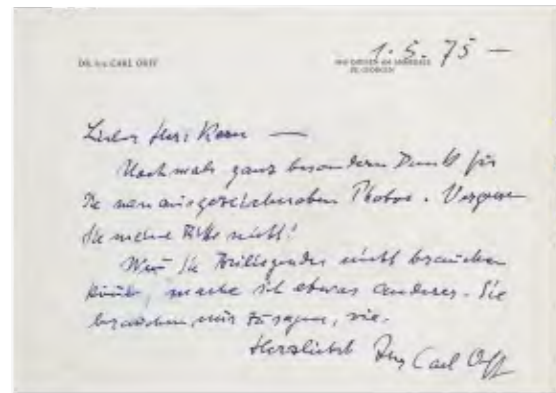 DR. h.c. CARL ORFF
1. 5. 75 —
8918 DIESSEN AM AMMERSEE
ST. GEORGEN
Lieber Herr Kern —
Nochmals ganz besondern Dank für
Die neuen ausgezeichneten Photos. Vergessen
Sie meine Bitte nicht!
Wenn Sie Beiliegendes nicht brauchen
können, mache ich etwas anderes. Sie
brauchen mir zu sagen, wie.
Herzlichst Ihr Carl Orff